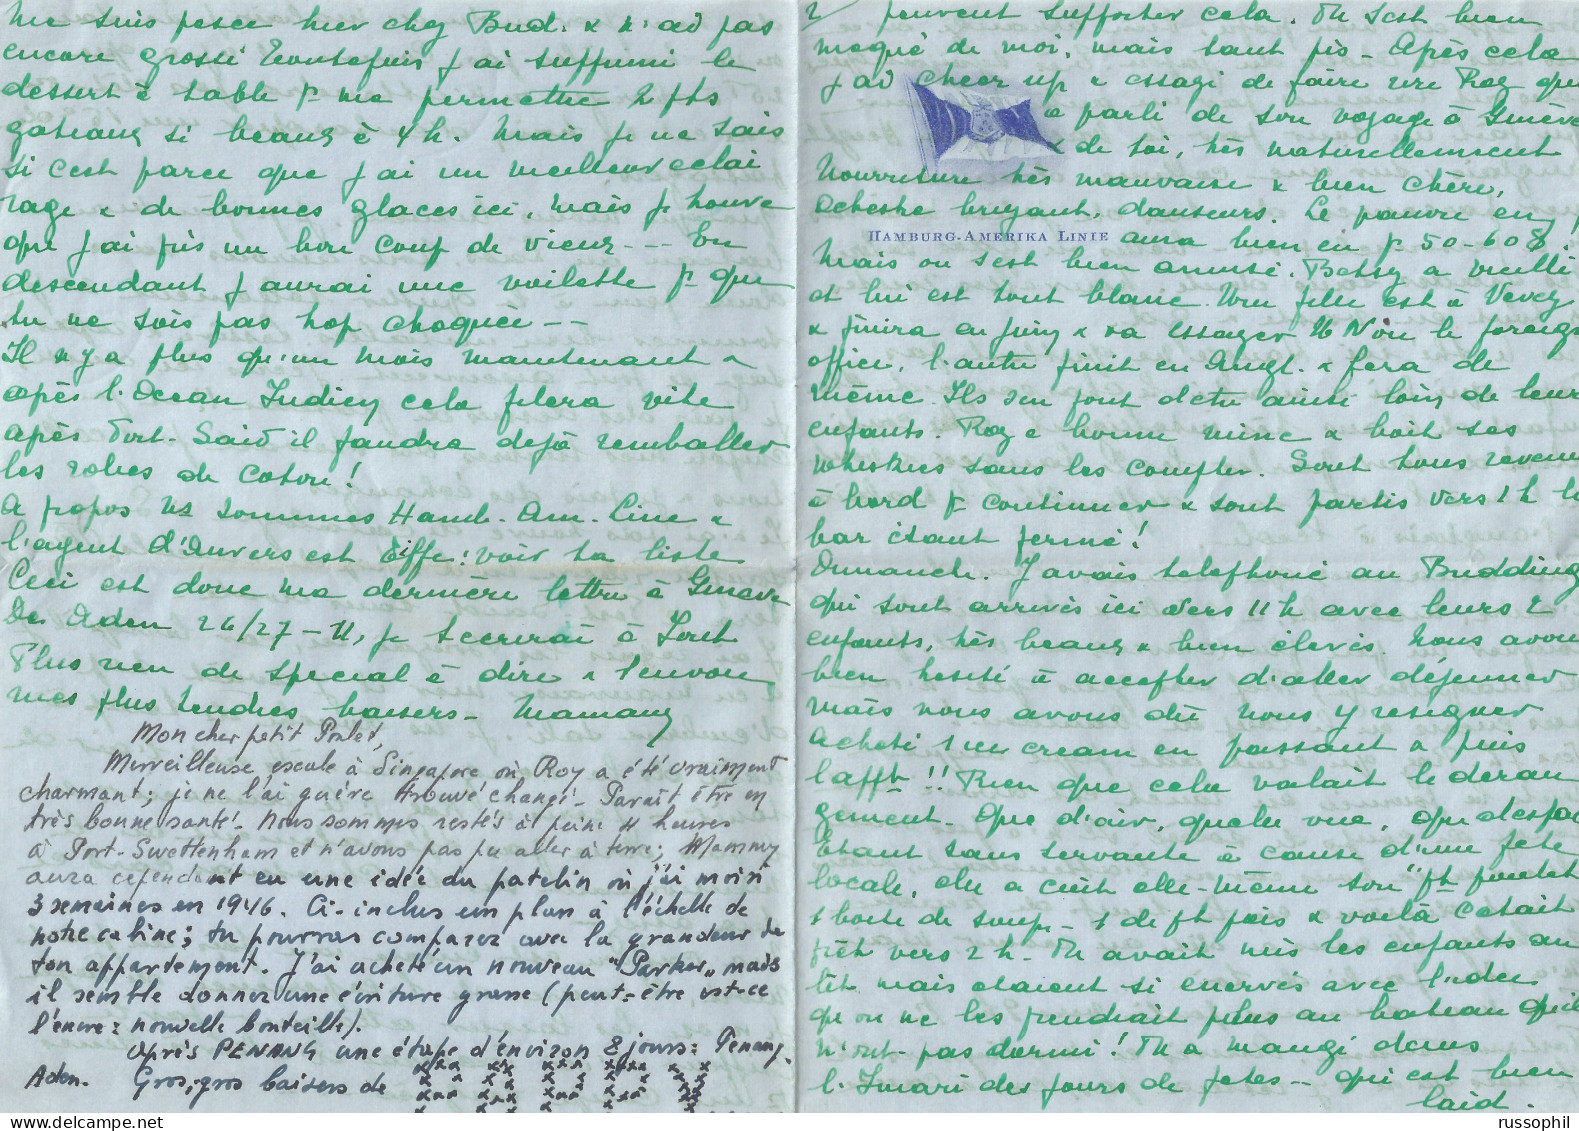 me suis pesée hier chez Bud. & n'ai pas
encore grossi Toutefois j'ai supprimé le
dessert à table & me permettre 2 pts
gateaux si beaux à 4 h. Mais je ne sais
si c'est parce que j'ai un meilleur éclai
rage & de bonnes glaces ici, mais je trouve
que j'ai pris un bon coup de vieux --- En
descendant j'aurai une voilette pr que
tu ne sois pas trop choquée --
Il n'y a plus qu'un mois maintenant &
après l'Ocean Indien cela filera vite
après Port-Said il faudra déjà remballer
les robes de coton!
A propos ns sommes Hamb. Am. Line &
l'agent d'Anvers est Eiffe: voir ta liste
Ceci est donc ma dernière lettre à Genève
Des Aden 26/27-11, je t'ecrirai à
Plus rien de special à dire & t'envoie
mes plus tendres baisers - Maman
Mon cher petit Poulet,
Merveilleuse escale à Singapore où Roy a été vraiment
charmant; je ne l'ai guère trouvé changé. Parait être en
très bonne santé. Nous sommes restés à peine 4 heures
à Port-Swettenham et n'avons pas pu aller à terre; Mammy
aura cependant eu une idée du patelin où j'ai moisi
3 semaines en 1946. Ci-inclus un plan à l'échelle de
notre cabine; tu pourras comparer avec la grandeur de
ton appartement. J'ai acheté un nouveau "Parker" mais
il semble donner une écriture grasse (peut-être est-ce
l'encre: nouvelle bouteille).
Après PENANG une étape d'environ 8 jours: Penang-
Aden. Gros, gros baisers de
2/ peuvent supporter cela. On s'est bien
moqué de moi, mais tant pis - Après cela
j'ai cheer up & essayé de faire rire Roy qui
a parlé de son voyage à Genève
& de toi, très naturellement
Nourriture très mauvaise & bien chère,
Orchestre bruyant, danseurs. Le pauvre en
HAMBURG-AMERIKA LINIE aura bien eu pr 50-60$.
Mais on s'est bien amusé. Betsy a vieilli
et lui est tout blanc. Une fille est à Vevey
& finira en juin & va essayer le foreign
office, l'autre finit en Angl. & fera de
même. Ils s'en font d'être ainsi loin de leurs
enfants. Roy a bonne mine & boit ses
whiskies sans les compter. Sont tous revenus
à bord pr continuer & sont partis vers 1 h le
bar étant fermé!
Dimanche. J'avais telephoné au Budding
qui sont arrivés ici vers 11 h avec leurs 2
enfants, très beaux & bien élevés. Nous avons
bien hesité à accepter d'aller déjeuner
mais nous avons dû nous y resigner
Acheté 1 ice cream en passant & puis
l'appt!! Rien que cela valait le deran
gement. Que d'air, quelle vue, que d'espace
Etant sans servante à cause d'une fete
locale, elle a cuit elle-même son "pt poulet
1 boite de soupe - 1 de pt pois & voilà C'etait
prêt vers 2 h. On avait mis les enfants au
lit mais etaient si enervés avec l'idée
qu'on ne les prendrait plus au bateau qu'ils
n'ont pas dormi! On a mangé dans
l. des jours de fetes - qui est bien
laid.